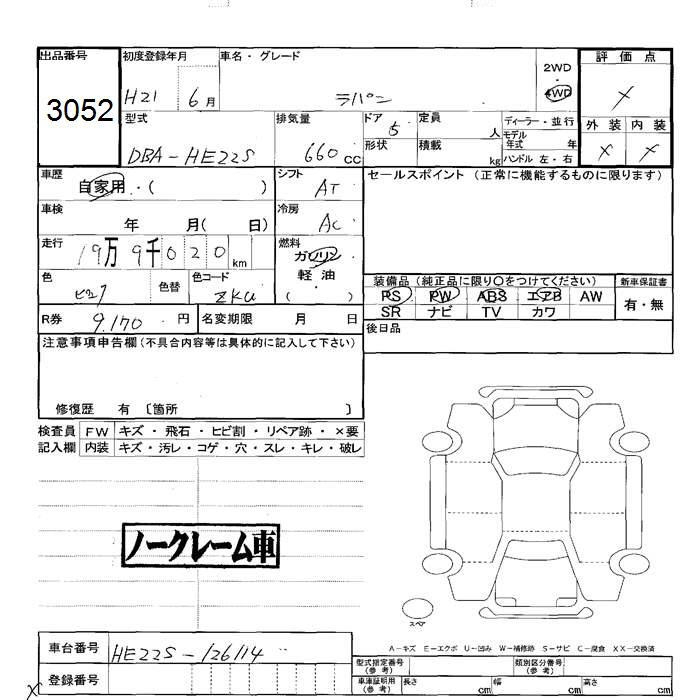 出品番号 初度登録年月 車名・グレード 2WD 評価点
3052 H21 6月 ラパン ・4WD ×
型式 排気量 ドア 5 定員 人 ディーラー・並行 外装 内装
DBA-HE22S 660cc 形状 積載 kg モデル年式 年 × ×
ハンドル 左・右
車歴 自家用・( ) シフト AT セールスポイント(正常に機能するものに限ります)
車検 年 月( 日) 冷房 AC
走行 19万9千020km 燃料 ガソリン
軽油
( )
色 ピンク 色替 色コード ZKU 装備品(純正品に限り○をつけてください) 新車保証書
PS PW ABS エアB AW 有・無
SR ナビ TV カワ
R券 9.170円 名変期限 月 日 後日品
注意事項申告欄(不具合内容等は具体的に記入して下さい)
修復歴 有〔箇所 〕
検査員 FW キズ・飛石・ヒビ割・リペア跡・×要
記入欄 内装 キズ・汚レ・コゲ・穴・スレ・キレ・破レ
ノークレーム車
スペア
A-キズ E-エクボ U-凹み W-補修跡 S-サビ C-腐食 XX-交換済
車台番号 HE22S-126114 型式指定番号(参考) 類別区分番号(参考)
登録番号 車庫証明用(参考) 長さ cm 幅 cm 高さ cm
×